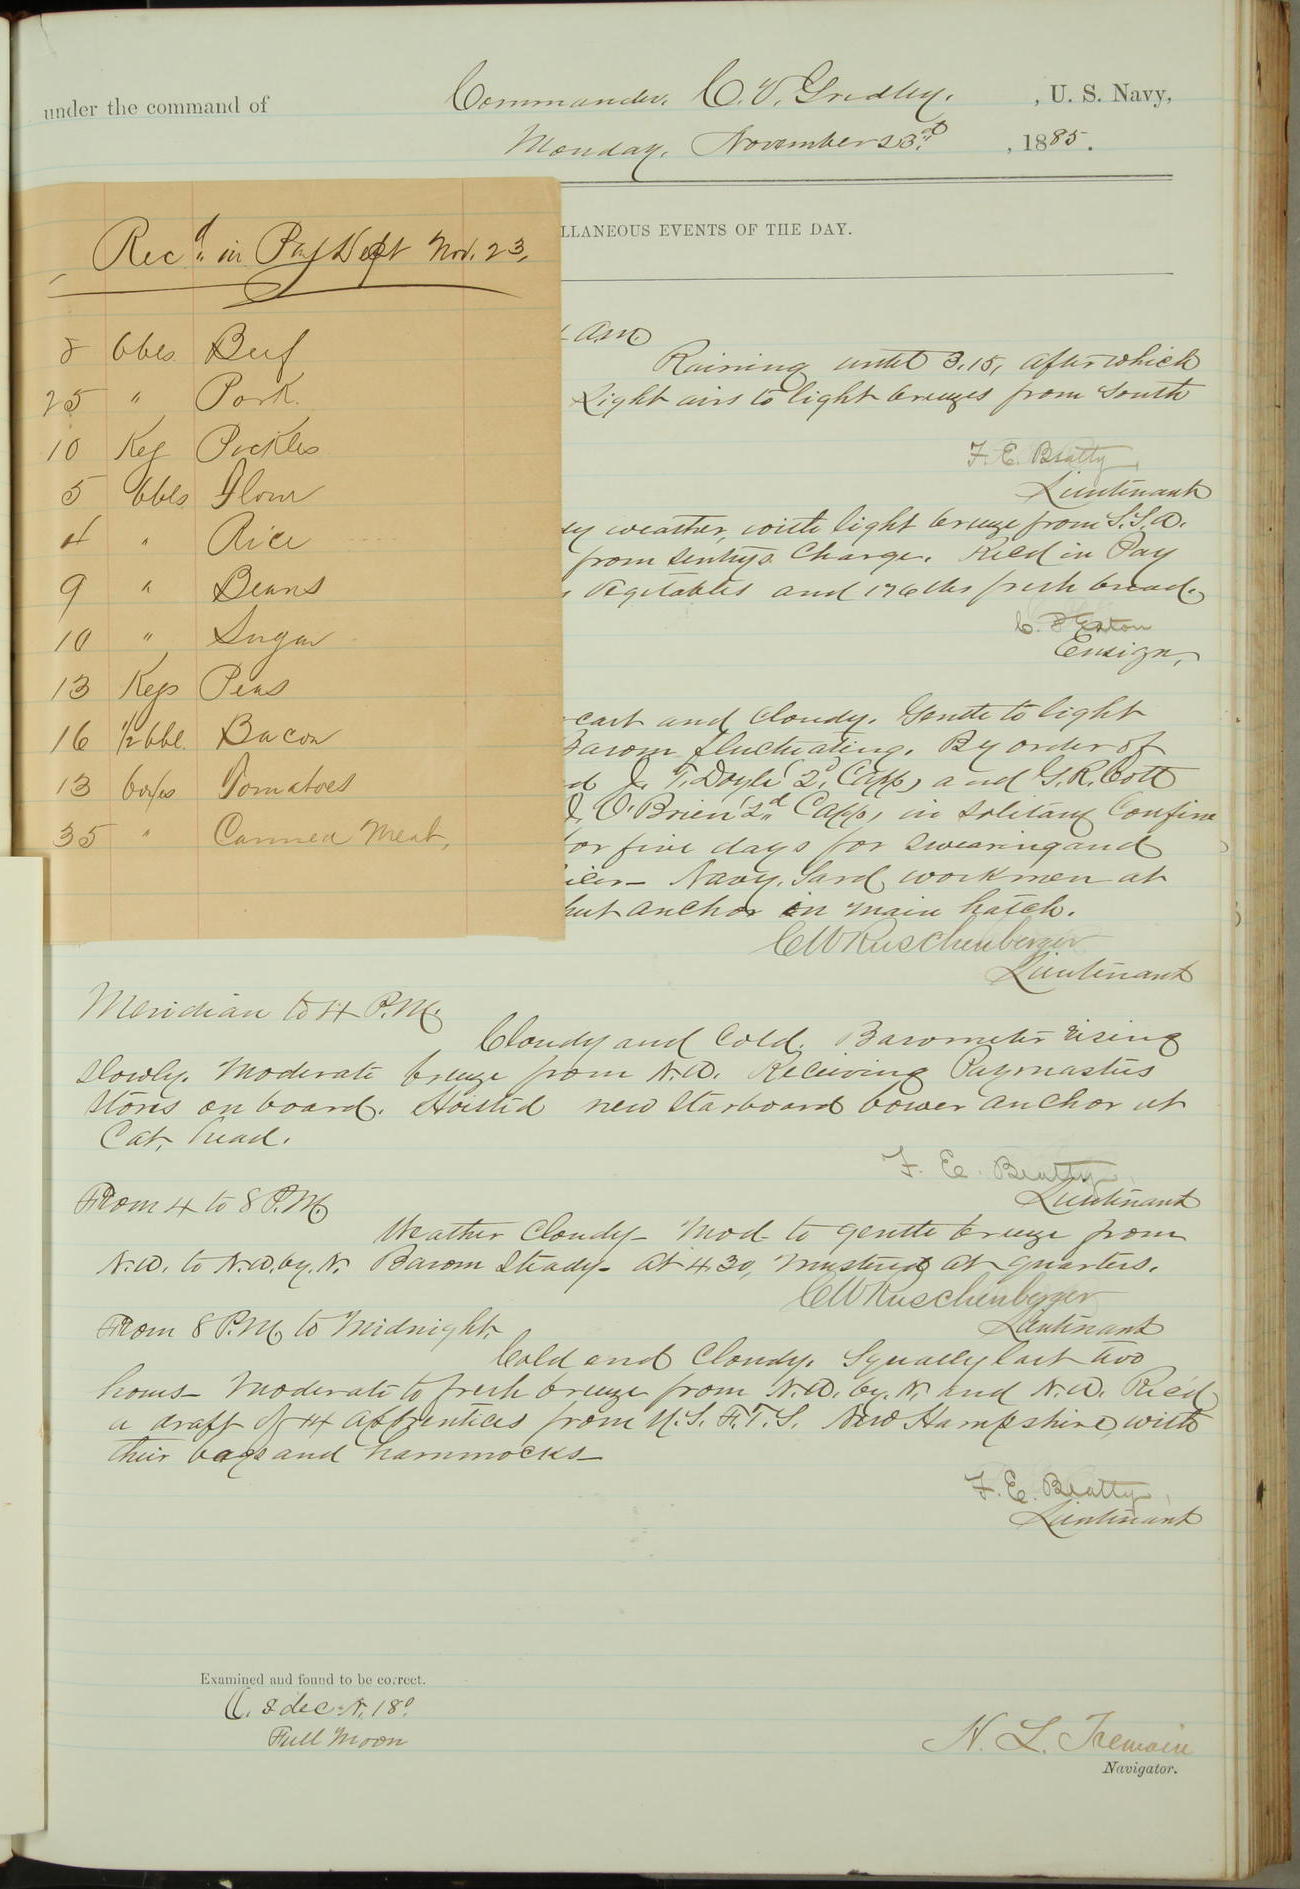 under the command of Commander. C. V. Gridley. , U. S. Navy,
Monday, November 23rd , 1885.
LLANEOUS EVENTS OF THE DAY.
Rec'd in Pay Dept Nov. 23,
8 bbls Beef
25 " Pork.
10 Keg Pickles
5 bbls Flour
4 " Rice
9 " Beans
10 " Sugar
13 Kegs Peas
16 1/2 bbl. Bacon
13 boxes Tomatoes
35 " Canned Meat,
am
Raining until 3.15, after which
Light airs to light breezes from South
F. E. Beatty,
Lieutenant
dy weather, with light breeze from S.S.W.
from sentry's charge. Rec'd in Pay
vegetables and 176 lbs fresh bread.
Ensign,
cast and cloudy. Gentle to light
Barom fluctuating. By order of
d J. T. Doyle (2d. Capp) and G. R. Cott
J. O'Brien (2d Capp) in solitary confine
for five days for swearing and
icer— Navy Yard workmen at
hut anchor in main hatch.
C W Ruschenberger
Lieutenant
Meridian to 4 P.M.
Cloudy and Cold. Barometer rising
slowly. Moderate breeze from N.W. Receiving Paymasters
stores on board. Hoisted new starboard bower anchor at
Cat, head.
F. E. Beatty,
Lieutenant
From 4 to 8 P.M.
Weather cloudy— Mod. to gentle breeze from
N.W. to N.W. by. N. Barom steady— At 4.30, mustered at quarters.
C W Ruschenberger
Lieutenant
From 8 P.M. to Midnight.
Cold and Cloudy. Squally last two
hours— Moderate to fresh breeze from N.W. by. N. and N.W. Rec'd
a draft of 14 apprentices from U.S. F.T.S. New Hampshire, with
their bags and hammocks—
F. E. Beatty,
Lieutenant
Examined and found to be correct.
dec. N. 18°.
Full Moon
N. L. Tremain
Navigator.